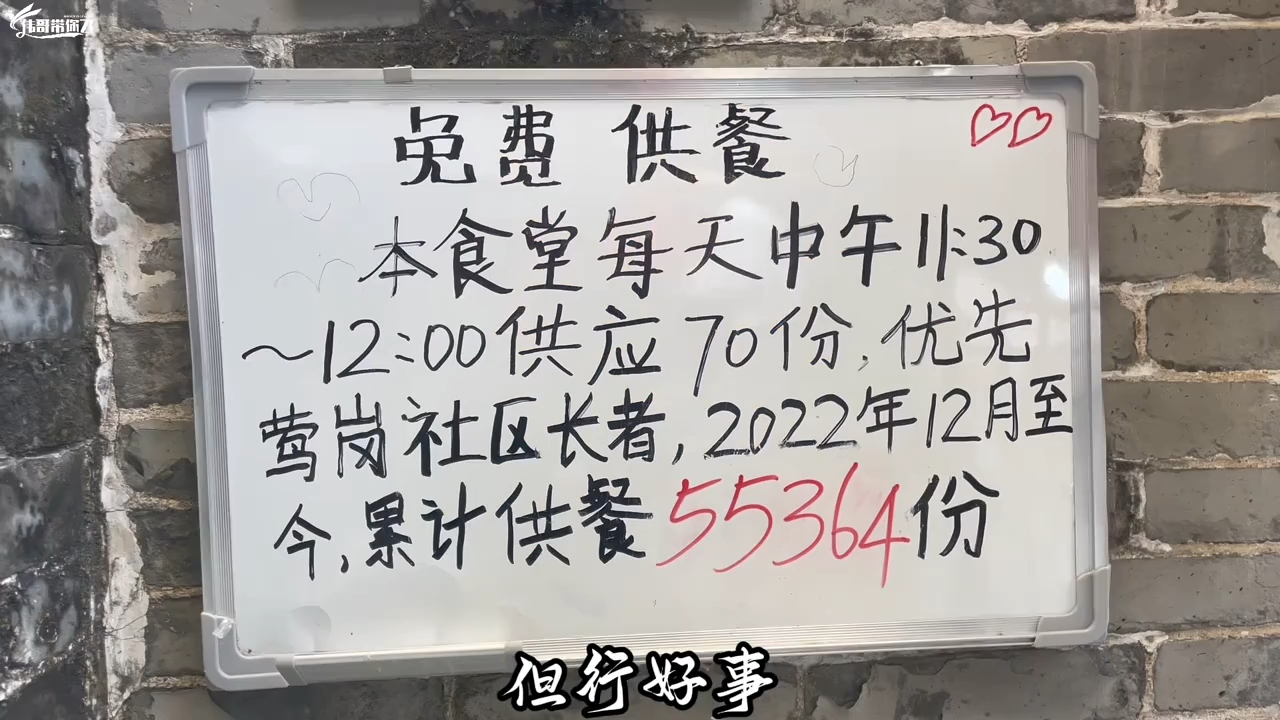 伟哥带你飞
免费 供餐
本食堂每天中午11:30
~12:00供应70份,优先
莺岗社区长者,2022年12月至
今,累计供餐55364份
但行好事